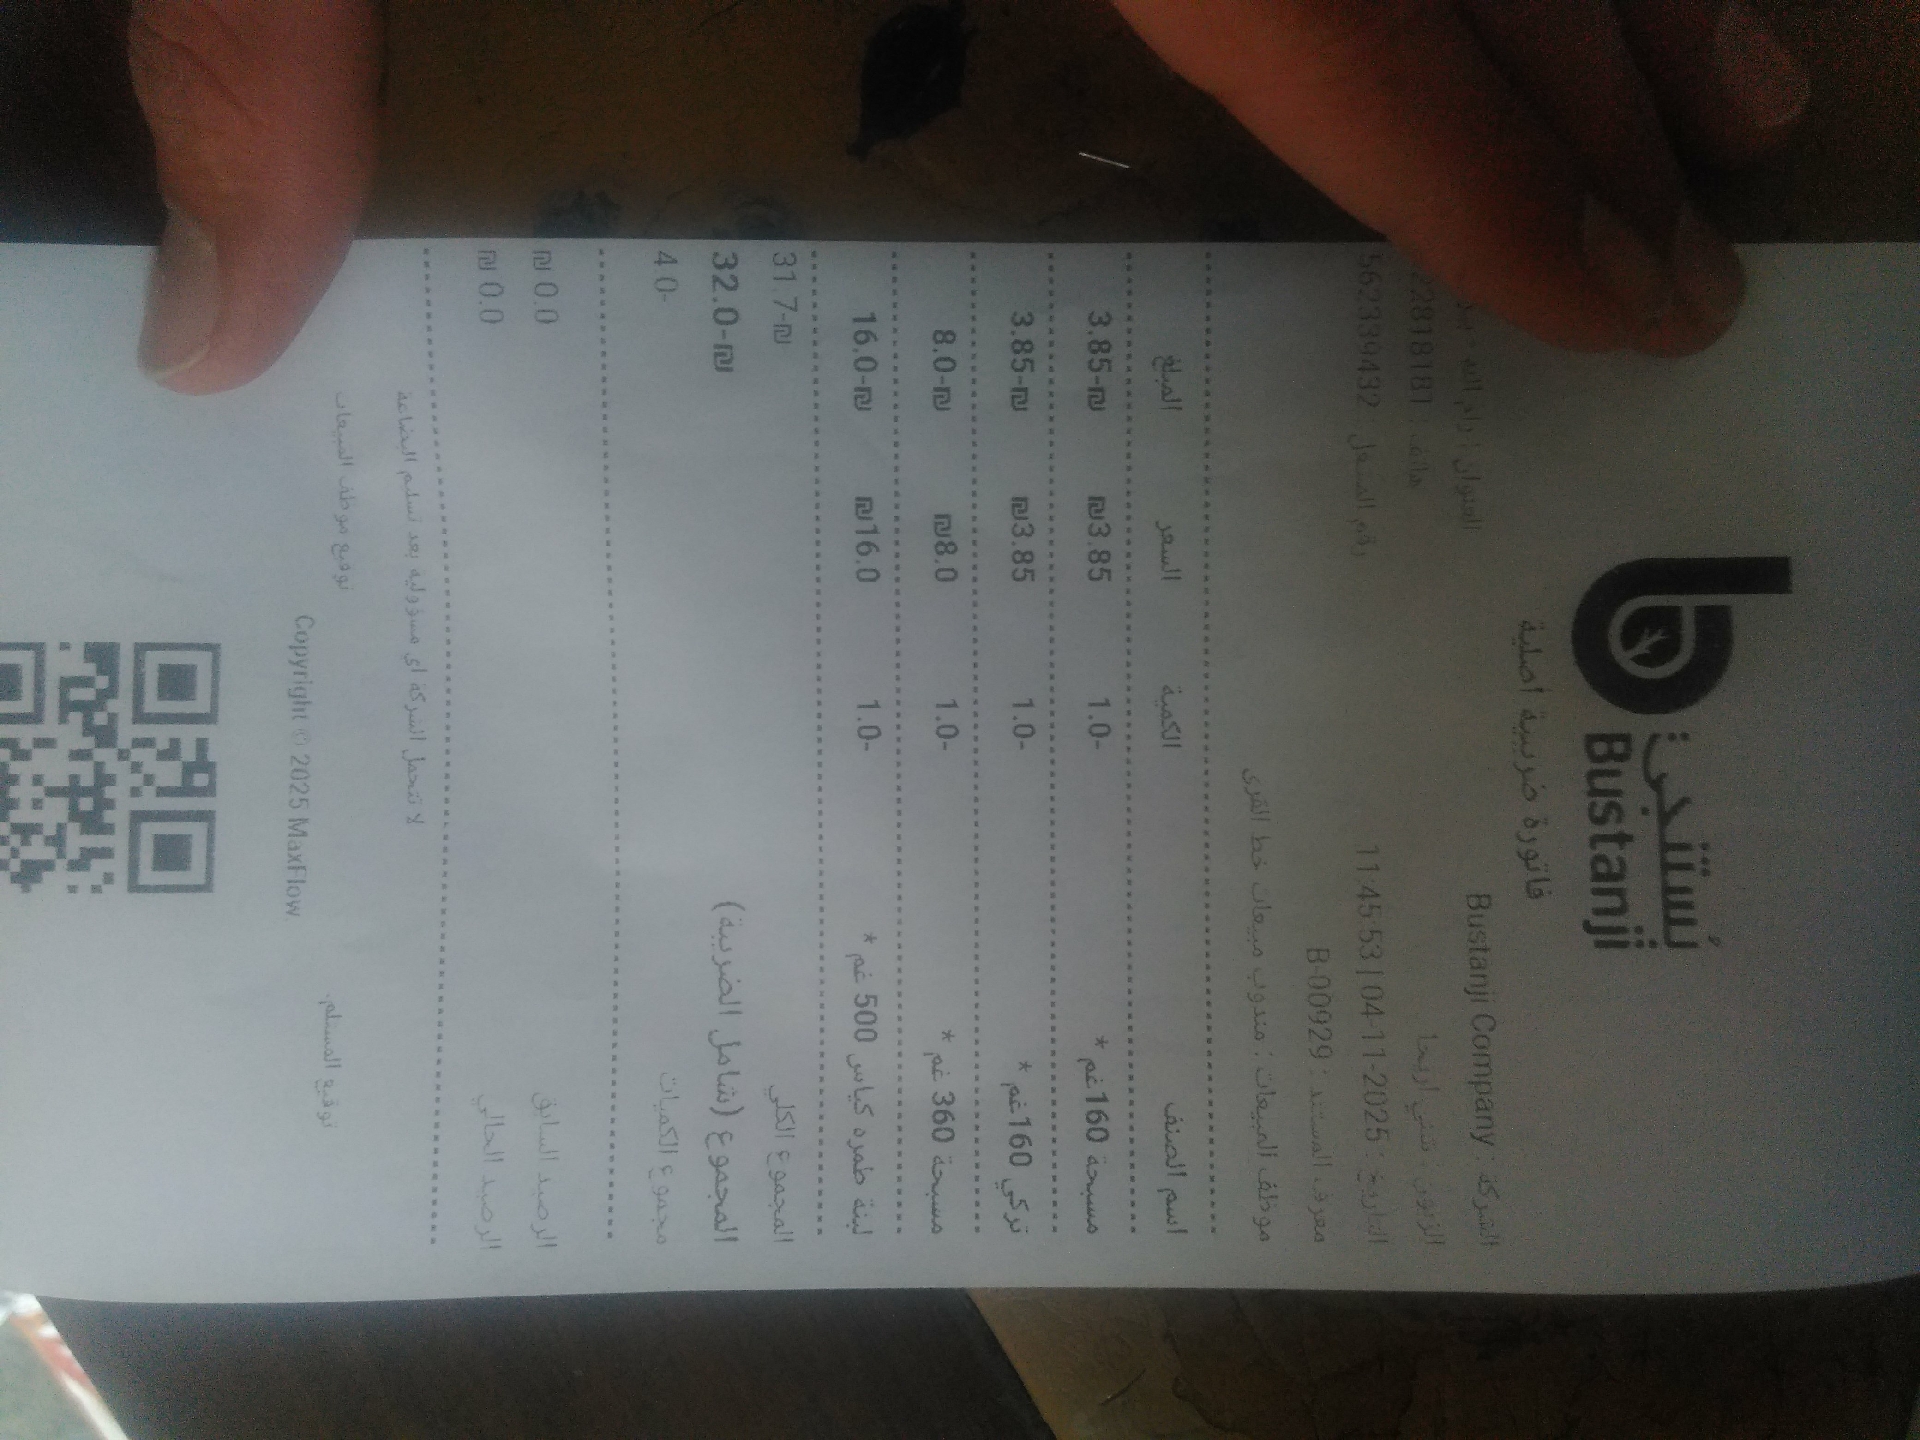 بُستنجي
Bustanji
فاتورة ضريبية أصلية
الشركة : Bustanji Company
العنوان : رام الله
الزبون : اريحا
هاتف : 22818181
التاريخ : 2025-11-04 | 11:45:53
رقم المشغل : 562339432
معرف المستند : B-00929
موظف المبيعات : مندوب مبيعات خط القرى
اسم الصنف الكمية السعر المبلغ
مسبحة 160غم * -1.0 ₪3.85 ₪-3.85
تركي 160غم * -1.0 ₪3.85 ₪-3.85
مسبحة 360 غم * -1.0 ₪8.0 ₪-8.0
لبنة طمره كياس 500 غم * -1.0 ₪16.0 ₪-16.0
المجموع الكلي ₪-31.7
المجموع (شامل الضريبة) ₪-32.0
مجموع الكميات -4.0
الرصيد السابق ₪ 0.0
الرصيد الحالي ₪ 0.0
لا تتحمل الشركة اي مسؤولية بعد تسليم البضاعة
توقيع المستلم توقيع موظف المبيعات
Copyright © 2025 MaxFlow.